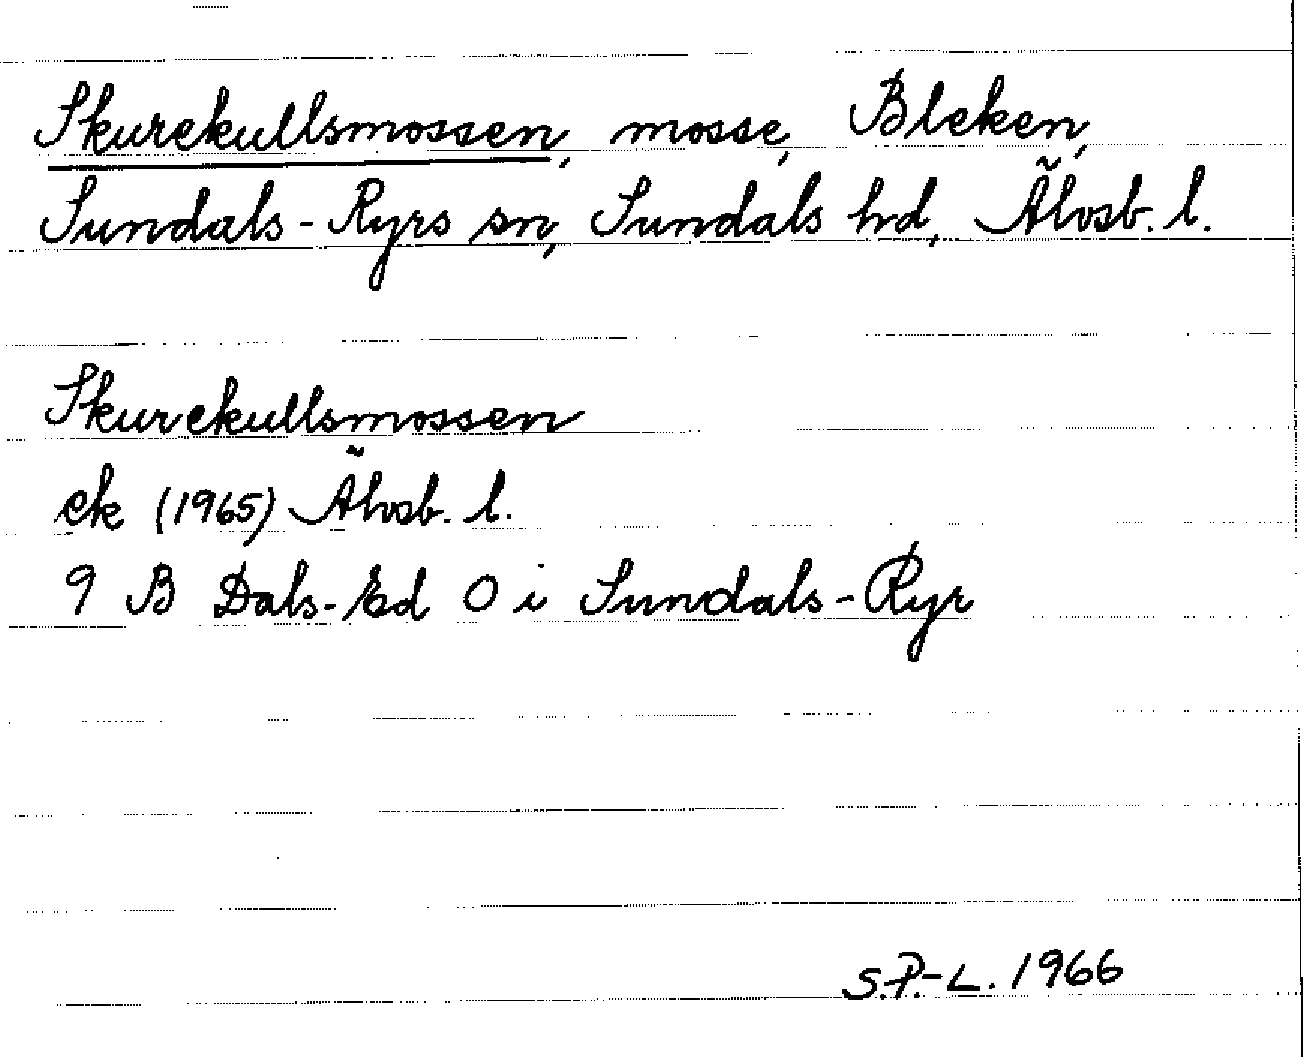 Skurekullsmossen, mosse, Bleken,
Sundals-Ryrs sn, Sundals hd, Älvsb. l.
Skurekullsmossen
ek (1965) Älvsb. l.
9 B Dals-Ed O i Sundals-Ryr
S.P.-L. 1966